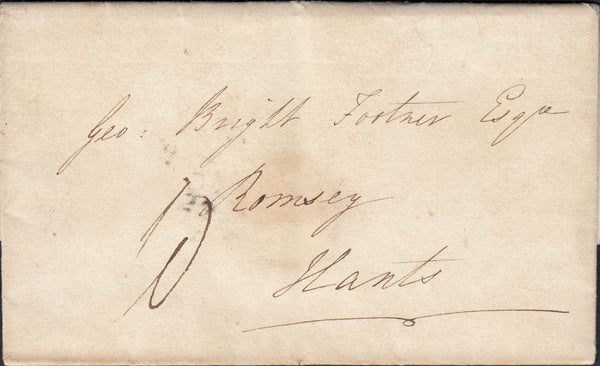 Geo: Bright Footner Esqre
Romsey
Hants